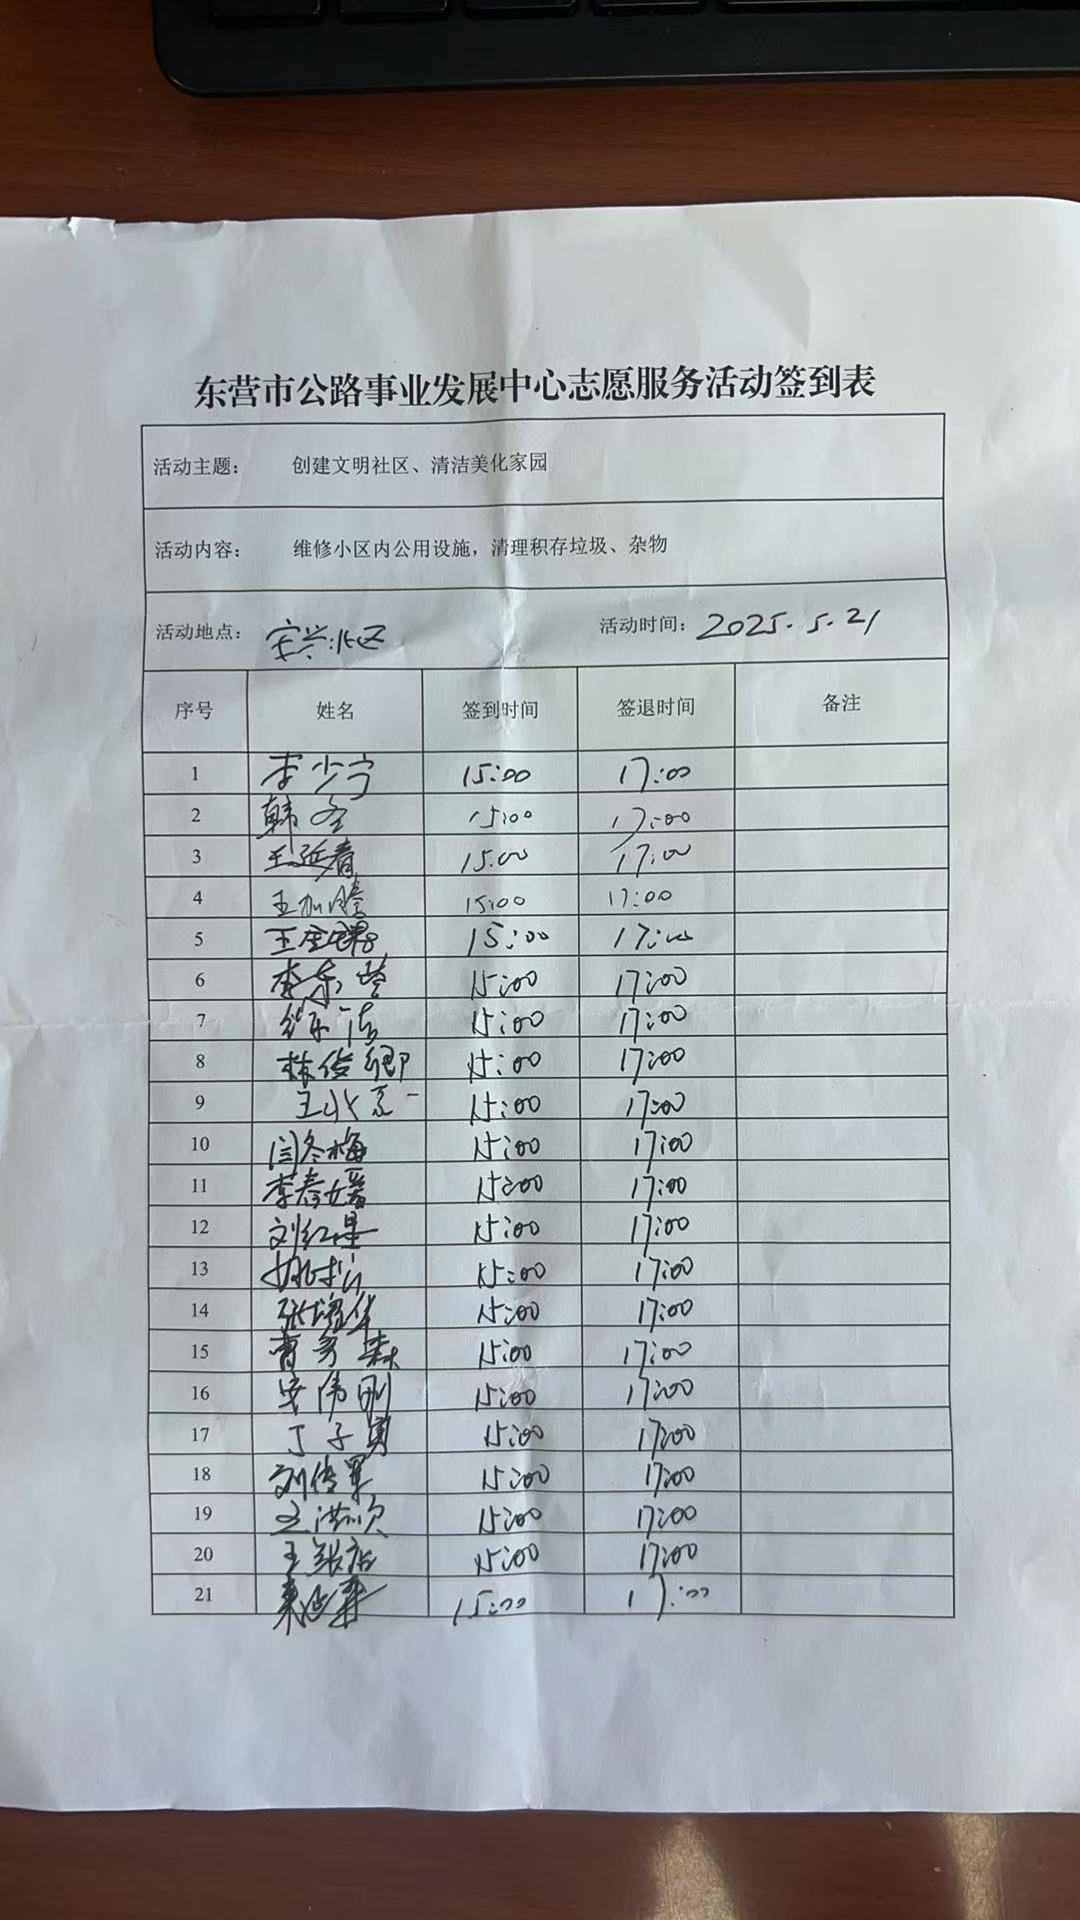 东营市公路事业发展中心志愿服务活动签到表
活动主题： 创建文明社区、清洁美化家园
活动内容： 维修小区内公用设施，清理积存垃圾、杂物
活动地点： 活动时间：2025.5.21
序号 姓名 签到时间 签退时间 备注
1 李少宁 15:00 17:00
2 韩 15:00 17:00
3 王延春 15:00 17:00
4 王加腾 15:00 17:00
5 王 15:00 17:00
6 李东营 15:00 17:00
7 15:00 17:00
8 林俊卿 15:00 17:00
9 王 15:00 17:00
10 闫冬梅 15:00 17:00
11 李春 15:00 17:00
12 刘红星 15:00 17:00
13 姚 15:00 17:00
14 张 华 15:00 17:00
15 曹 森 15:00 17:00
16 安伟刚 15:00 17:00
17 丁子勇 15:00 17:00
18 刘传军 15:00 17:00
19 王洪 15:00 17:00
20 王 15:00 17:00
21 15:00 17:00